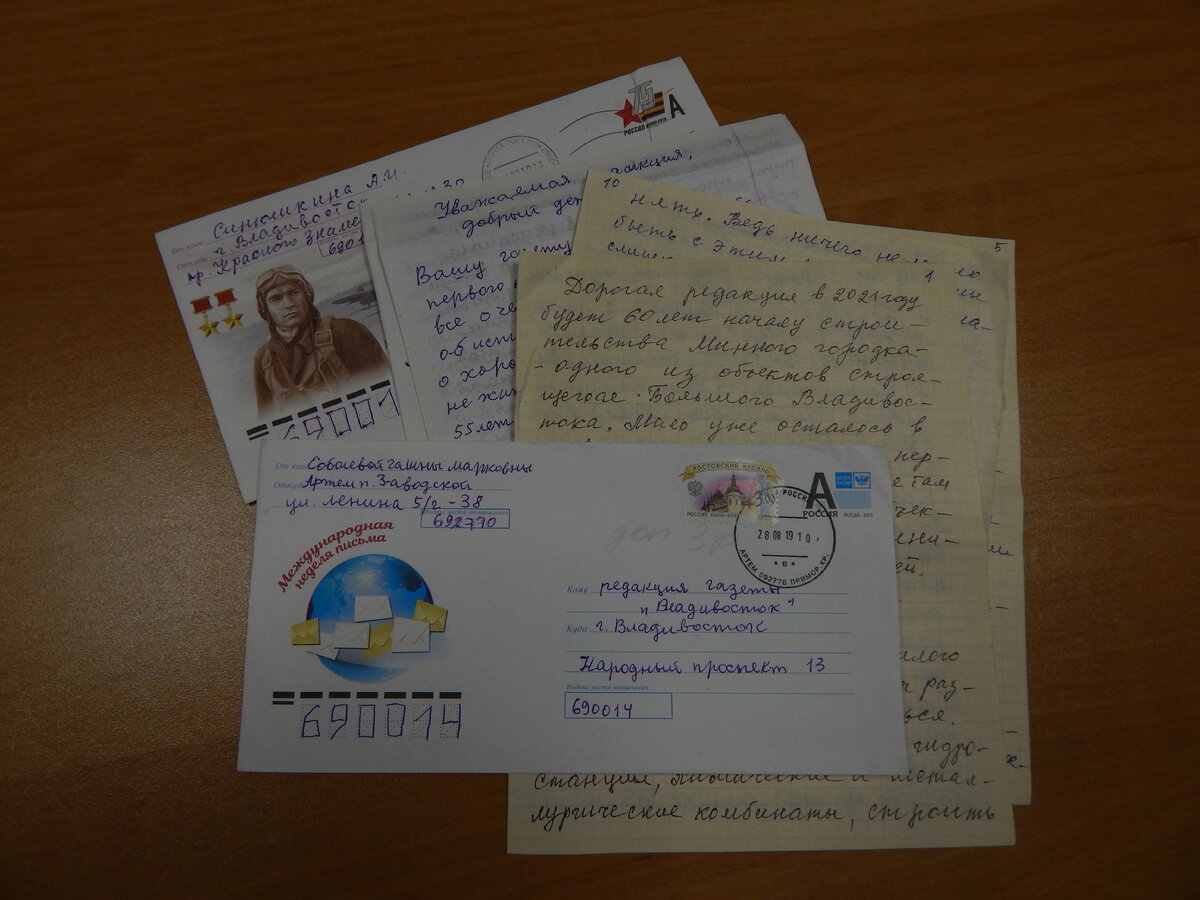 75
А
РОССИЯ
От кого Синюпкина А.И.
г. Владивосток
Откуда
пр. Красного Знаме
6901
69001
Уважаемая редакция,
добрый ден
Вашу газету
первого
все о че
об ист
о хоро
не жи
55 лет
10
5
нять. Ведь ничего не
быть с этим
1
Дорогая редакция в 2021 году
будет 60 лет началу строи-
тельства Минного городка-
- одного из объектов строя-
щегося Большого Владивос-
тока. Мало уже осталось в
пер-
е там
чек-
ени-
ей.
илого
раз-
ься.
гидро-
станции, химические и метал-
лургические комбинаты, строить
От кого Собаевой Галины Марковны
Откуда Артем п. Заводской
ул. Ленина 5/2 - 38
Индекс места отправления
692770
Международная
неделя письма
690014
РОСТОВСКИЙ КРЕМЛЬ
РОССИЯ RUSSIA
А
РОССИЯ
RUSSIA 2019
РОССИЯ
28 08 19 10
АРТЕМ 692778 ПРИМОР. КР.
В
доп 3р
Кому редакция газеты
"Владивосток"
Куда г. Владивосток
Народный проспект 13
Индекс места назначения
690014